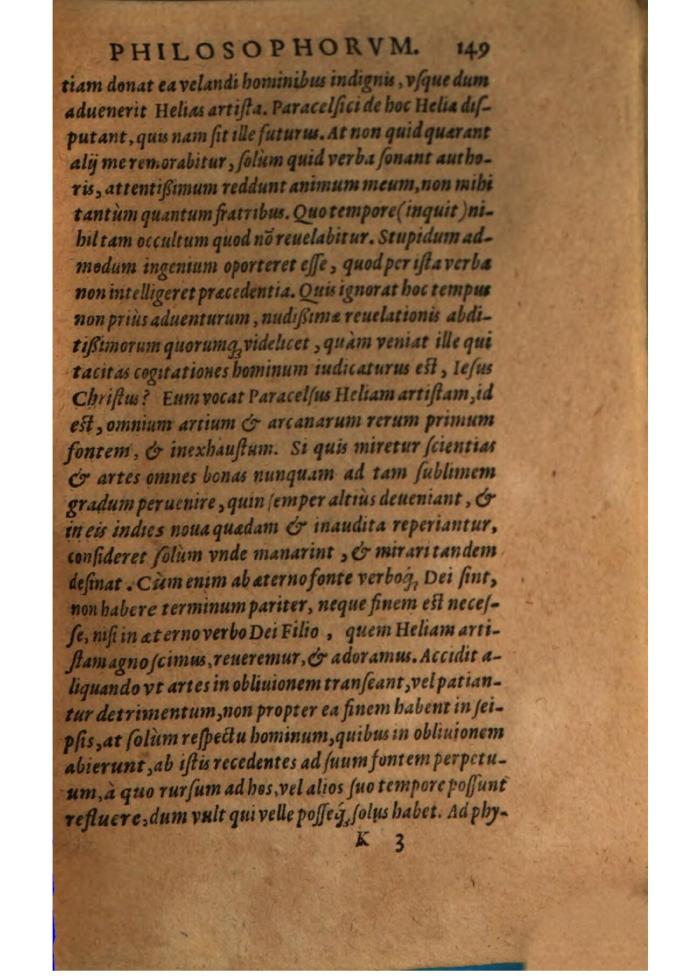 PHILOSOPHORVM. 149
tiam donat ea velandi hominibus indignis, vſque dum
aduenerit Helias artiſta. Paracelſici de hoc Helia diſ-
putant, quis nam ſit ille futurus. At non quid quærant
alij me remorabitur, ſolùm quid verba ſonant autho-
ris, attentißimum reddunt animum meum, non mihi
tantùm quantum fratribus. Quo tempore (inquit) ni-
hil tam occultum quod nō reuelabitur. Stupidum ad-
modum ingenium oporteret eſſe, quod per iſta verba
non intelligeret præcedentia. Quis ignorat hoc tempus
non priùs aduenturum, nudißimæ reuelationis abdi-
tißimorum quorumq; videlicet, quàm veniat ille qui
tacitas cogitationes hominum iudicaturus est, Ieſus
Chriſtus? Eum vocat Paracelſus Heliam artiſtam, id
est, omnium artium & arcanarum rerum primum
fontem, & inexhauſtum. Si quis miretur ſcientias
& artes omnes bonas nunquam ad tam ſublimem
gradum peruenire, quin ſemper altiùs deueniant, &
in eis indies noua quædam & inaudita reperiantur,
conſideret ſolùm vnde manarint, & mirari tandem
deſinat. Cùm enim ab æterno fonte verboq; Dei ſint,
non habere terminum pariter, neque finem est neceſ-
ſe, niſi in æterno verbo Dei Filio, quem Heliam arti-
ſtam agnoſcimus, reueremur, & adoramus. Accidit a-
liquando vt artes in obliuionem tranſeant, vel patian-
tur detrimentum, non propter ea finem habent in ſei-
pſis, at ſolùm reſpectu hominum, quibus in obliuionem
abierunt, ab iſtis recedentes ad ſuum fontem perpetu-
um, à quo rurſum ad hos, vel alios ſuo tempore poſſunt
refluere, dum vult qui velle poſſeq́; ſolus habet. Ad phy-
K 3